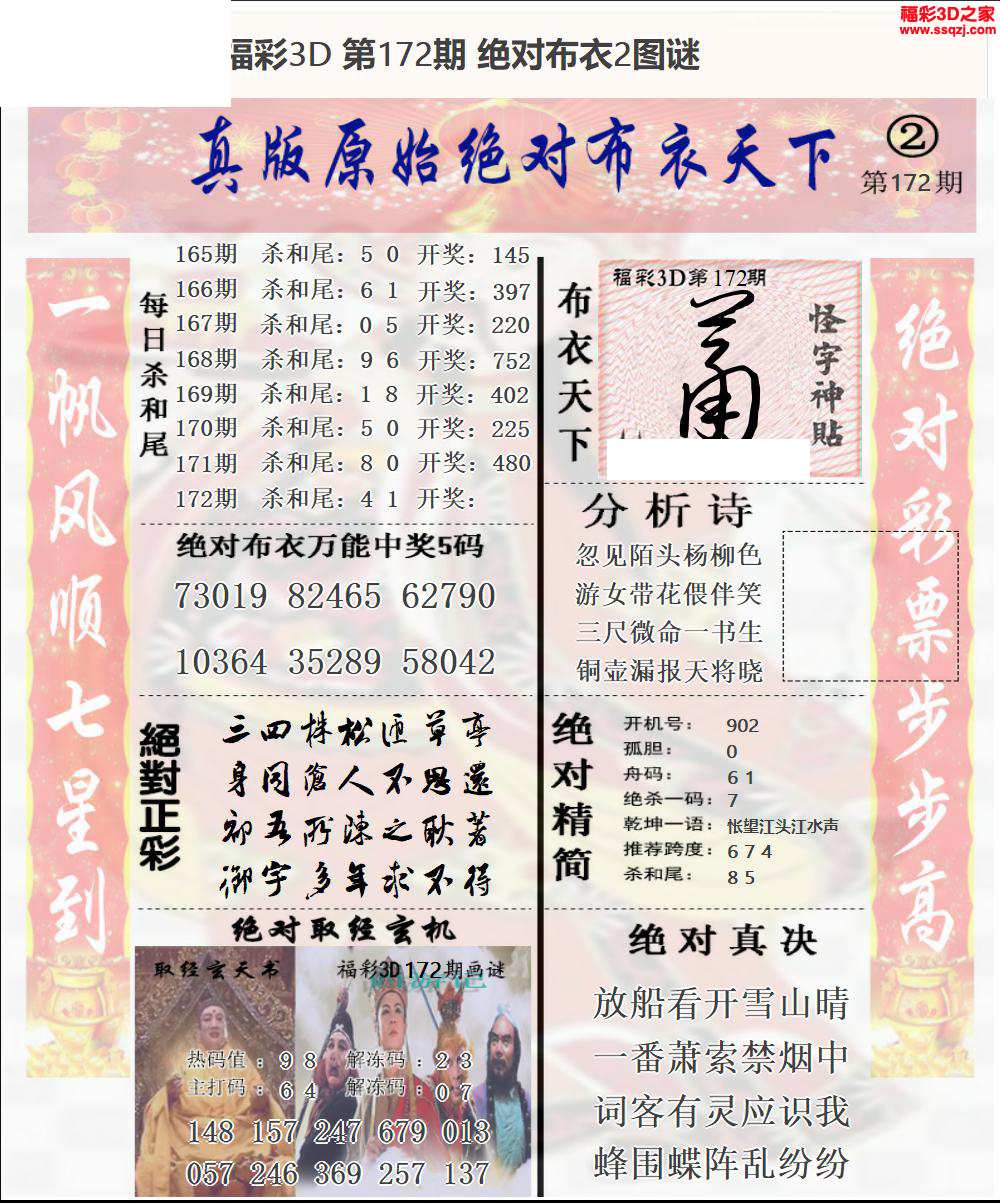 福彩3D之家
www.ssqzj.com
福彩3D 第172期 绝对布衣2图谜
真版原始绝对布衣天下
②
第172期
一帆风顺七星到
每日杀和尾
165期 杀和尾: 5 0 开奖: 145
166期 杀和尾: 6 1 开奖: 397
167期 杀和尾: 0 5 开奖: 220
168期 杀和尾: 9 6 开奖: 752
169期 杀和尾: 1 8 开奖: 402
170期 杀和尾: 5 0 开奖: 225
171期 杀和尾: 8 0 开奖: 480
172期 杀和尾: 4 1 开奖:
绝对布衣万能中奖5码
73019 82465 62790
10364 35289 58042
絕對正彩
三四株松匝草亭
身同滄人不思還
御宇多年求不得
绝对取经玄机
取经玄天书
福彩3D172期画谜
热码值 : 9 8 解冻码 : 2 3
主打码 : 6 4 解冻码 : 0 7
148 157 247 679 013
057 246 369 257 137
布衣天下
福彩3D第172期
怪字神貼
分析诗
忽见陌头杨柳色
游女带花偎伴笑
三尺微命一书生
铜壶漏报天将晓
绝对精简
开机号: 902
孤胆: 0
舟码: 6 1
绝杀一码: 7
乾坤一语: 怅望江头江水声
推荐跨度: 6 7 4
杀和尾: 8 5
绝对真决
放船看开雪山晴
一番萧索禁烟中
词客有灵应识我
蜂围蝶阵乱纷纷
绝对彩票步步高